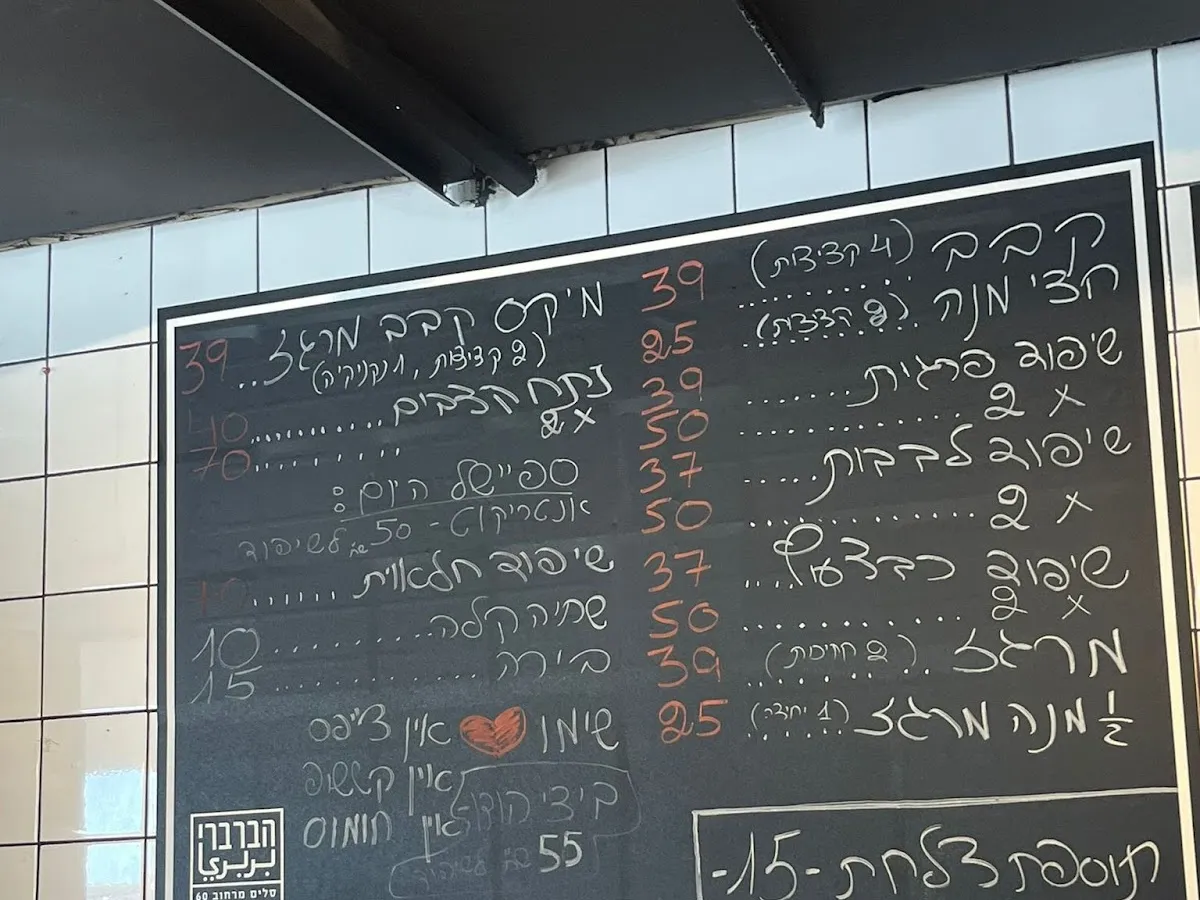 קבב (4 קציצות) ...... 39
חצי מנה (2 קציצות) ...... 25
שיפוד פרגית ...... 39
2 x ...... 50
שיפוד לבבות ..... 37
2 x ...... 50
שיפוד כבד עוף ... 37
2 x ...... 50
מרגז (2 חתיכות) ...... 39
1/2 מנה מרגז (1 יחידה) ...... 25
תוספת צלחת -15-
מיקס קבב מרגז ... 39
(2 קציצות, 1 נקניקיה)
נתח קצבים ...... 40
2x ...... 70
ספיישל היום:
אנטריקוט - 50 ש"ח לשיפוד
שיפוד חלאווית ...... 40
שתיה קלה ...... 10
בירה ...... 15
שימו ❤ אין צ'יפס
אין קטשופ
אין חומוס
ביצי הודו -
55 ש"ח
הברברי
ברברי
סלים מרחוב 60